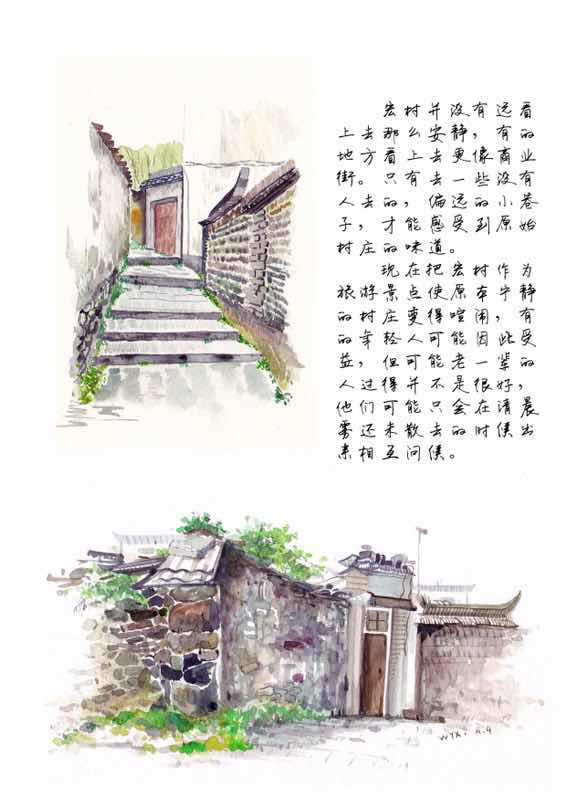 宏村并没有远看
上去那么安静，有的
地方看上去更像商业
街。只有去一些没有
人去的，偏远的小巷
子，才能感受到原始
村庄的味道。
现在把宏村作为
旅游景点使原本宁静
的村庄变得喧闹，有
的年轻人可能因此受
益，但可能老一辈的
人过得并不是很好，
他们可能只会在清晨
雾还未散去的时候出
来相互问候。
WYX. 4.4